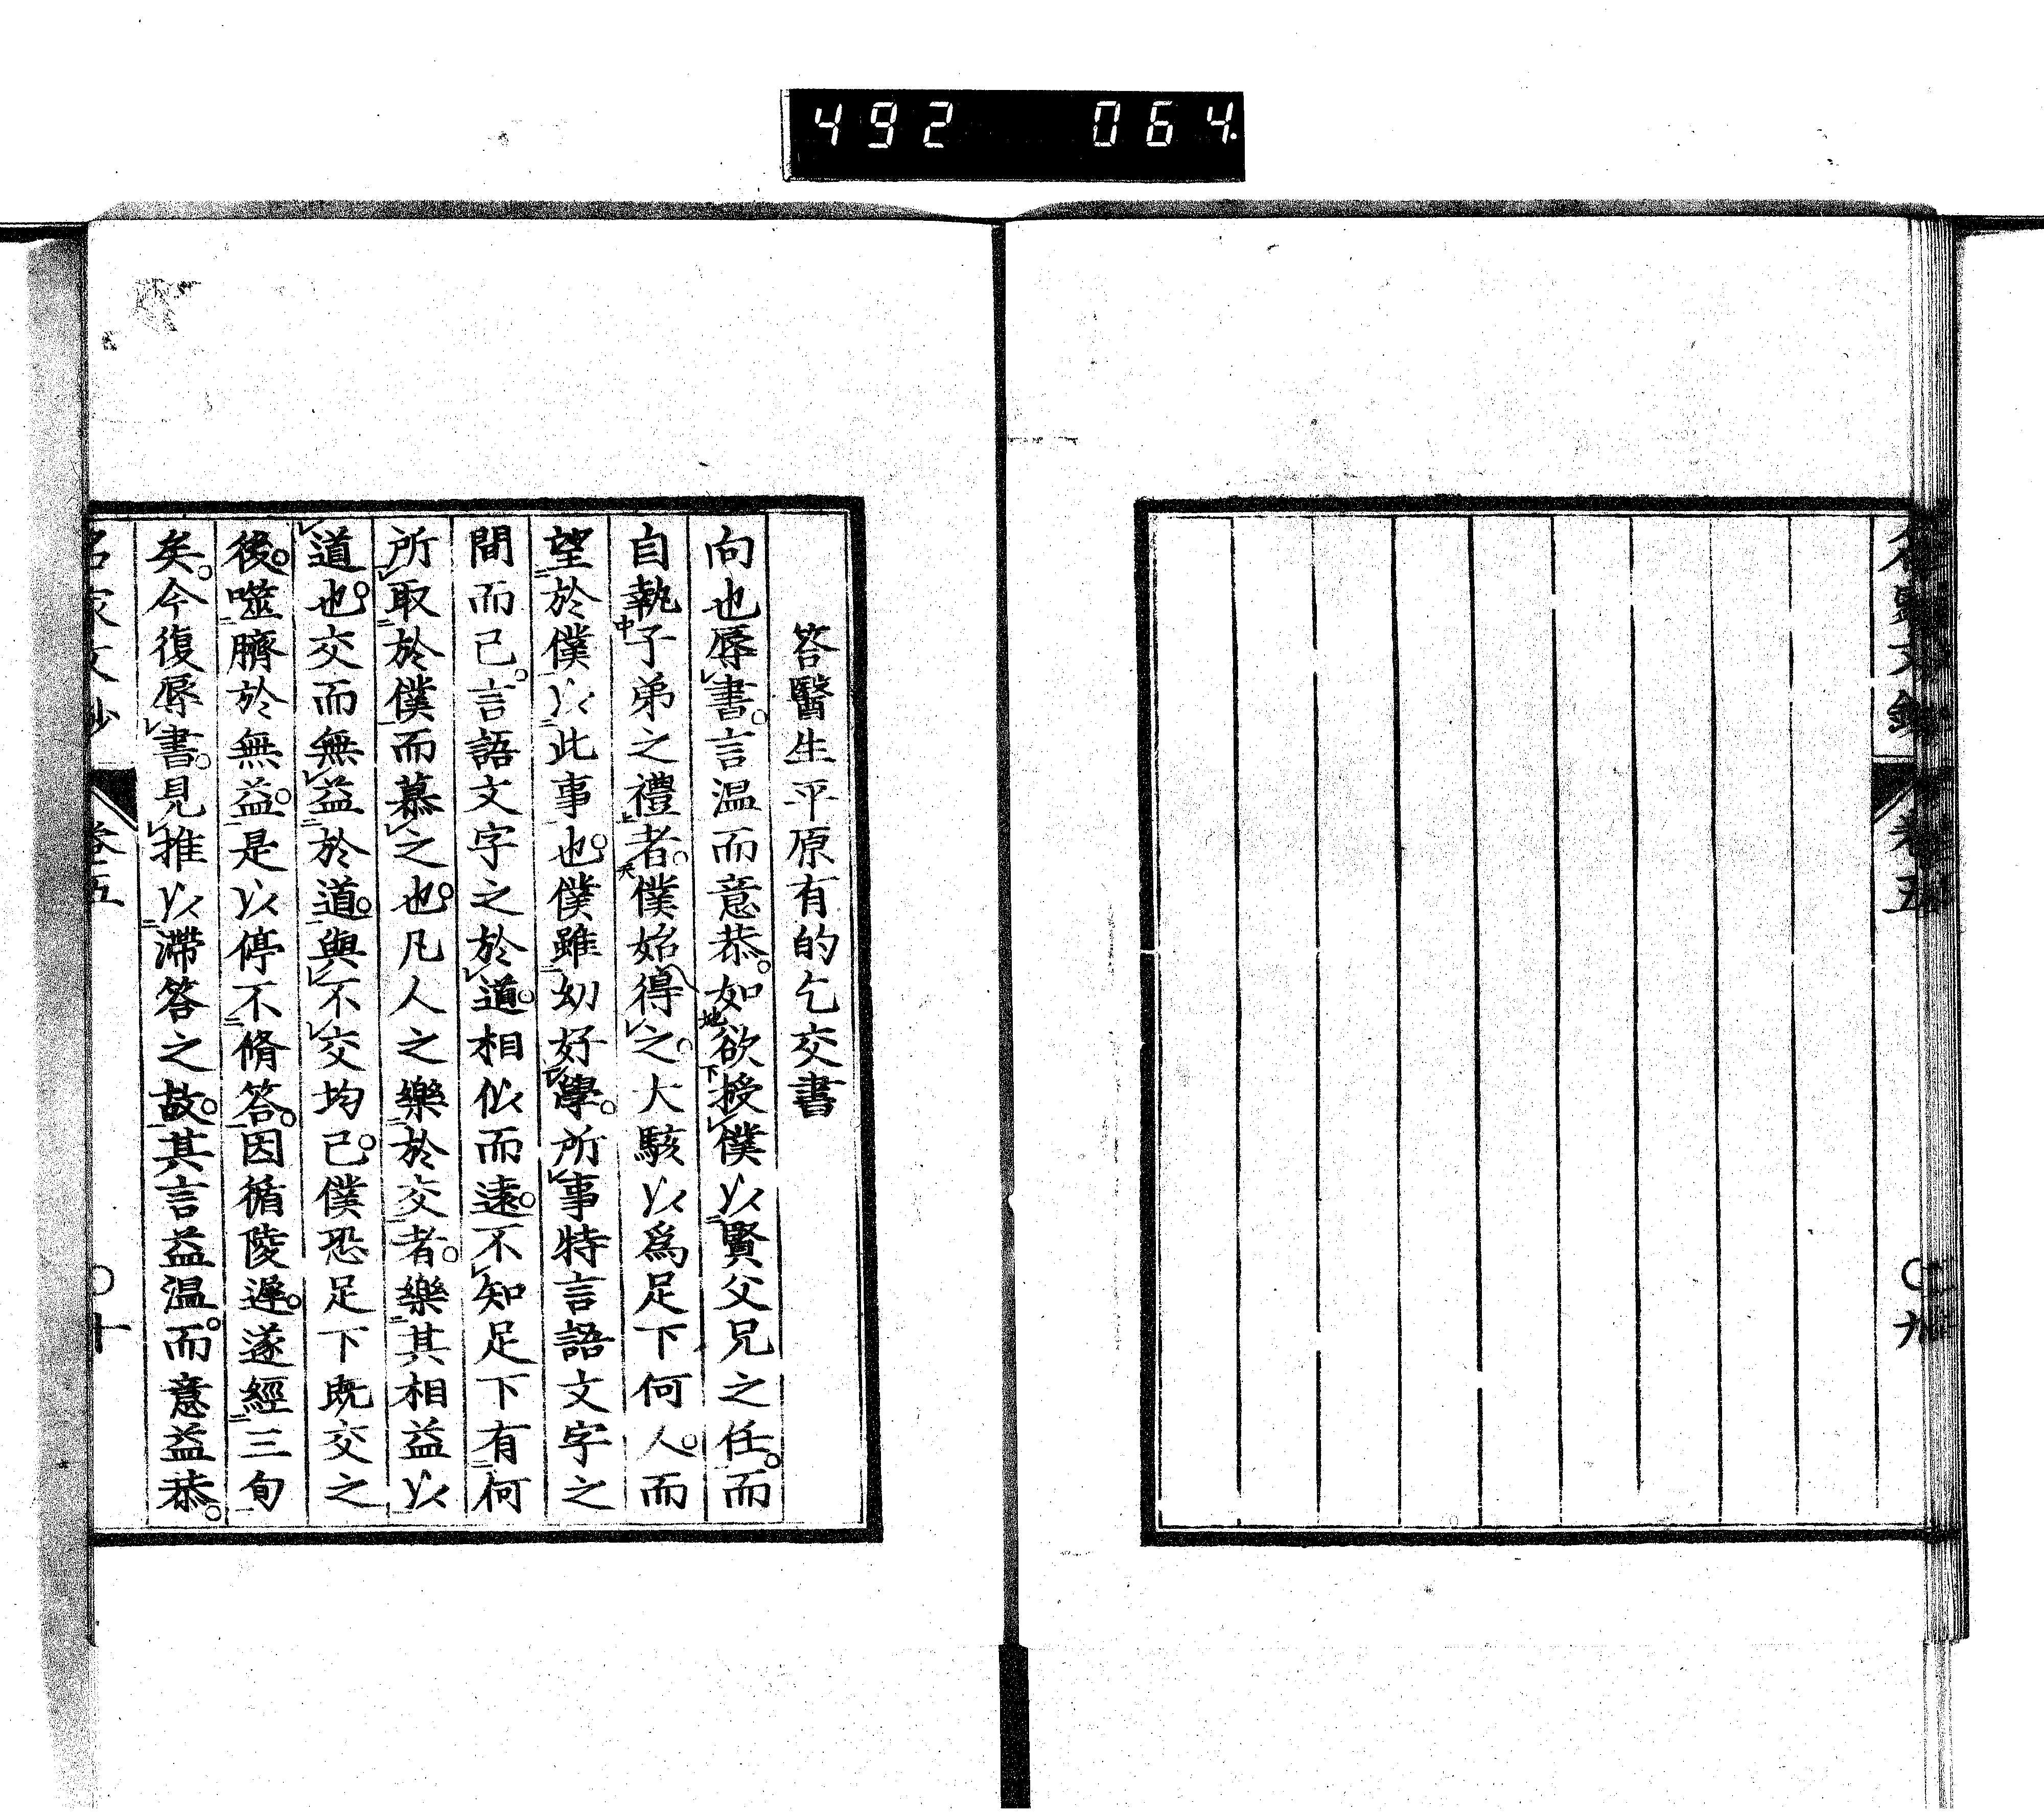 492 064
卷五
九
答醫生平原有的乞交書
向也辱書。言温而意恭。如欲授僕以賢父兄之任。而
自執子弟之禮者。僕始得之。大駭以爲足下何人。而
望於僕以此事也。僕雖幼好學。所事特言語文字之
間而已。言語文字之於道。相似而遠。不知足下有何
所取於僕而慕之也。凡人之樂於交者。樂其相益以
道也。交而無益於道。與不交均已。僕恐足下既交之
後。噬臍於無益。是以停不脩答。因循陵遲。遂經三旬
矣。今復辱書。見推以滯答之故。其言益温。而意益恭。
名家文抄
卷五
〇十